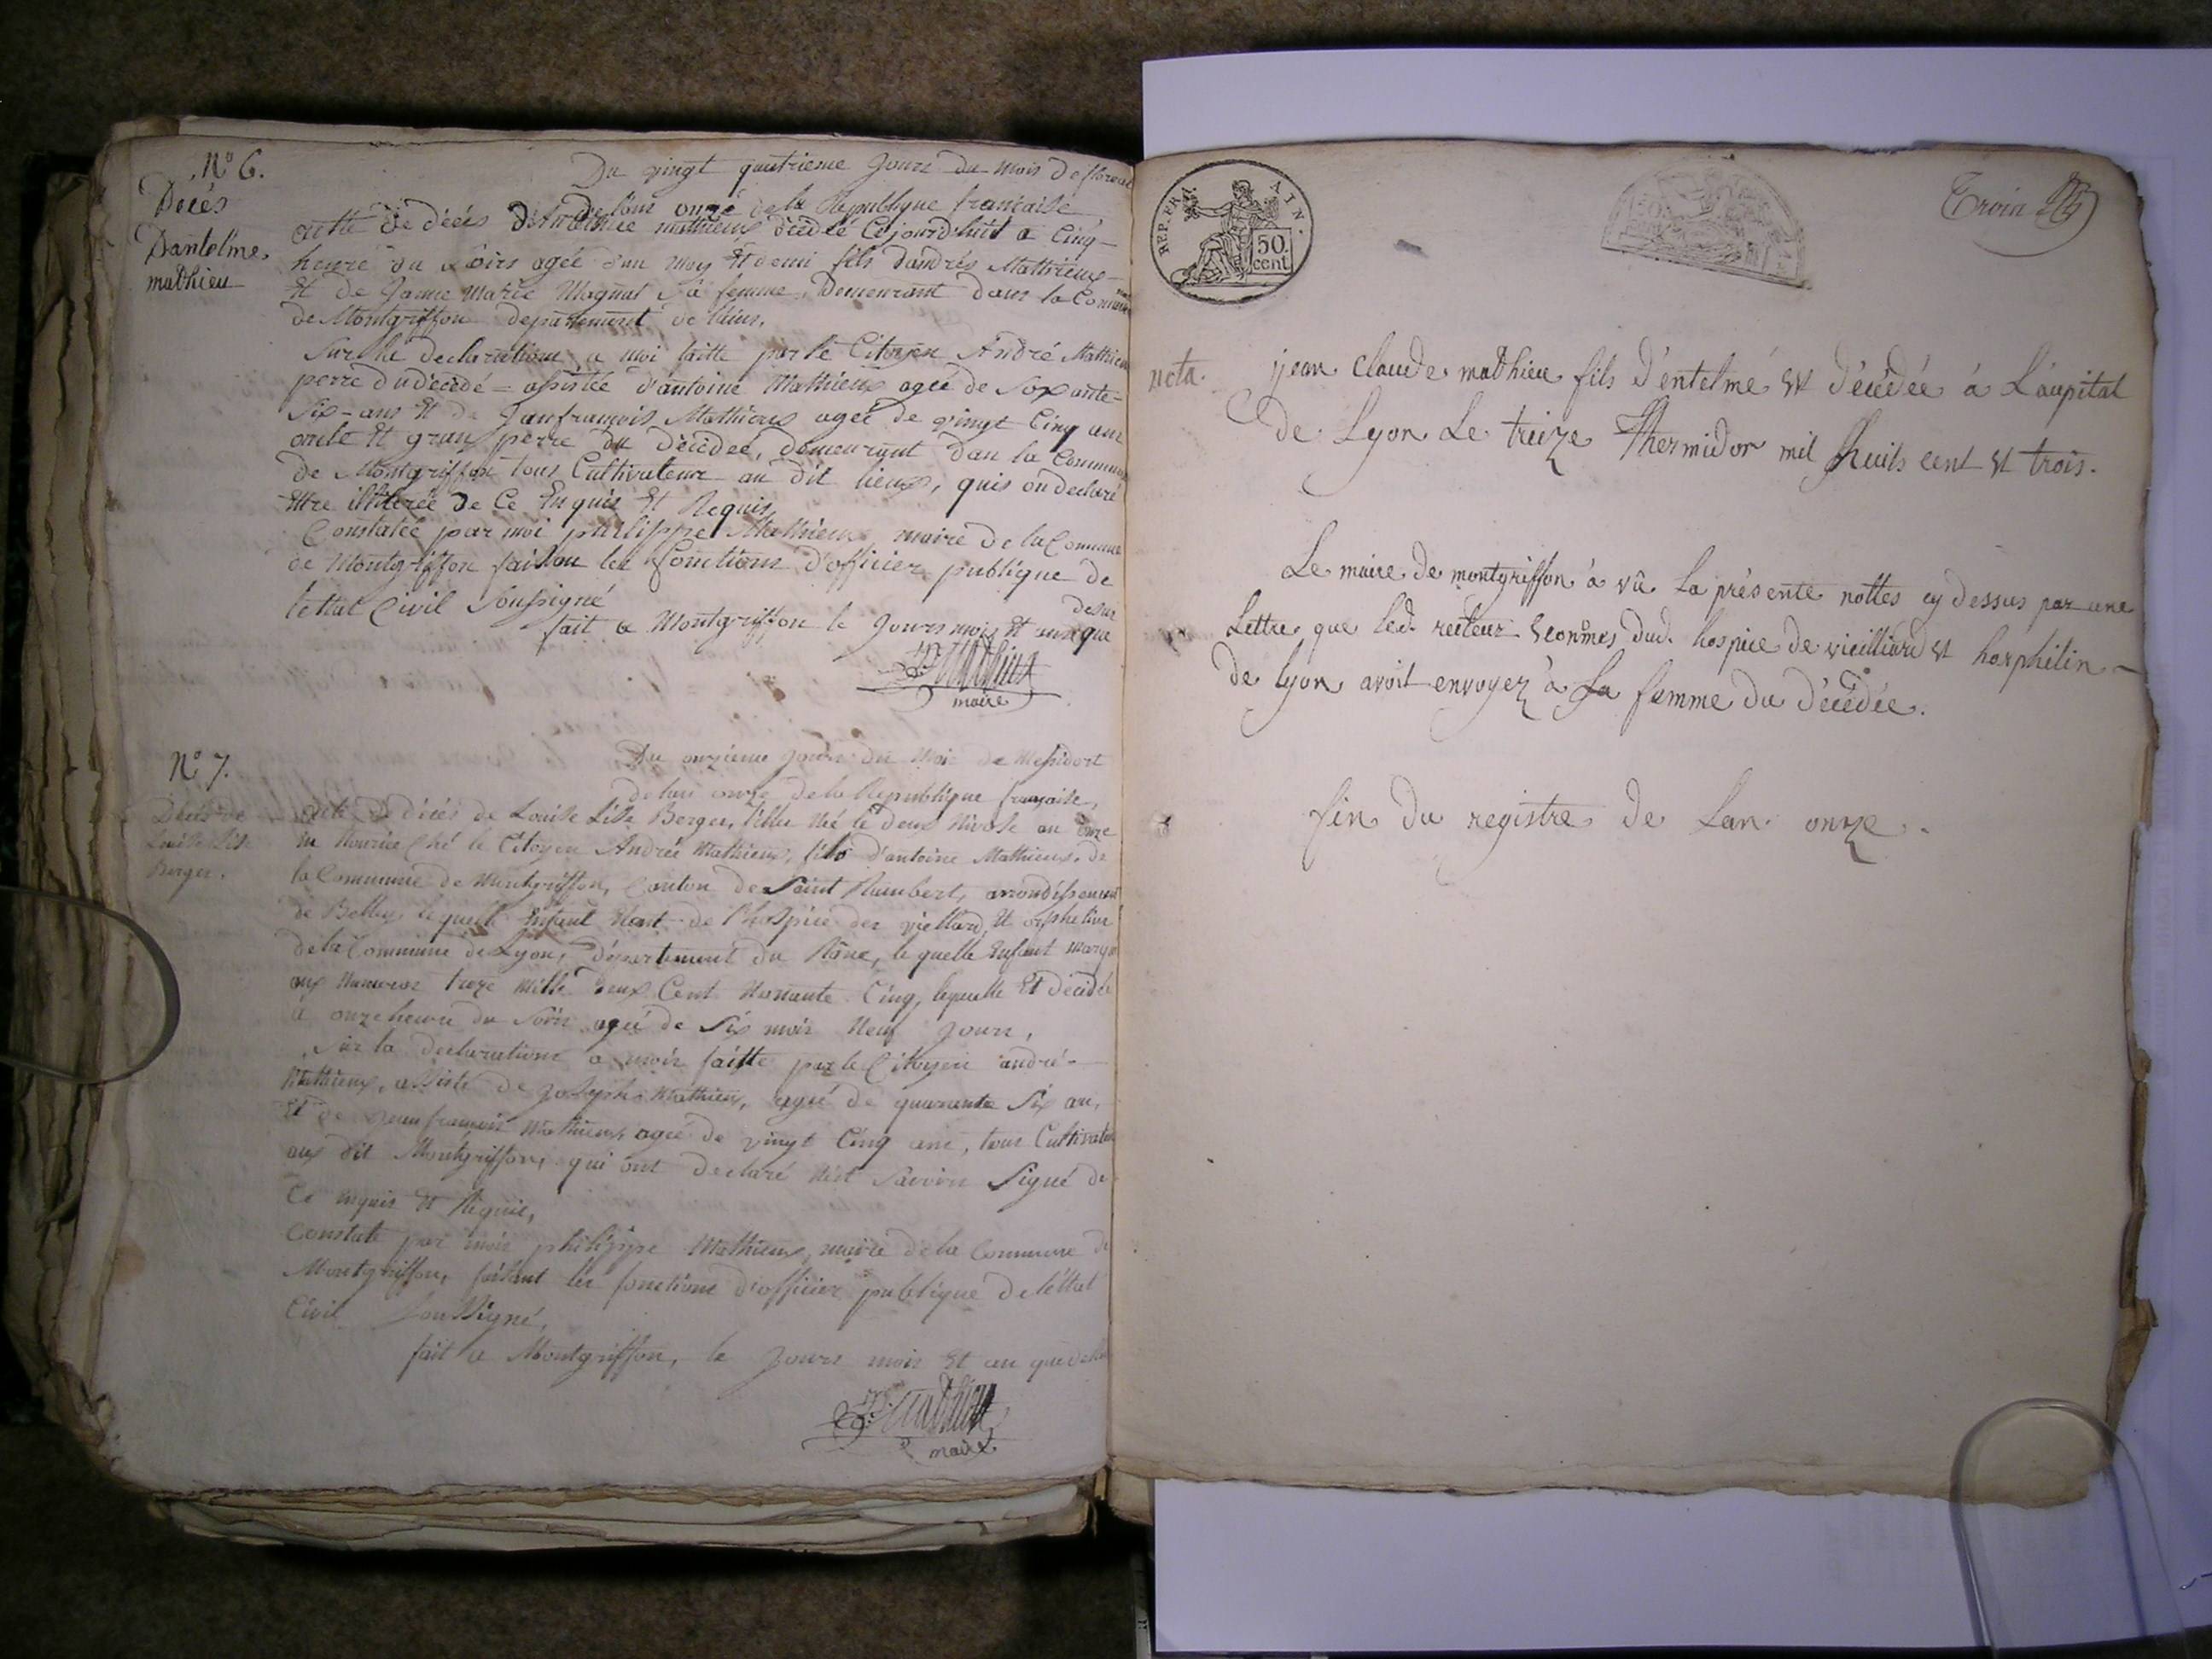 N° 6.
Décés
Dantelme
mathieu
Du vingt quatrieme Jours du mois de floreal
de lan onze de la Republique francaise
acte de décés d'Anthelme mathieux décédé Cejourdhuit a Cinq
heure du Soirs agée dun moy Et demi fils dandrés Mathieux
Et de Janne Marie Magnat Sa femme, Demeurant dans la Commune
de Montgriffon departement de lains.
Sur la declarations a moi faitte par le Citoyen André Mathieu
perre du décédé = assistée d'antoine Mathieux ageé de Soxante
Six = ans Et de Janfrançois Mathieux ageé de vingt Cinq ans
oncle Et gran perre du décédeé, demeurant dan la Commune
de Montgriffon tous Cultivateur au dit lieux, quis on declaré
Ettre illiterée de Ce Enquis Et Requis,
Constatée par moi philippe Mathieux maire de la Commune
de Montgriffon faisan les fonctions d'officier publique de
lettat Civil Soussigné
fait a Montgriffon le Jours mois Et an que desur
P. Mathieu
maire
N° 7.
Décés de
Louise Lise
Berger.
Du onzieme Jours du Mois de Messidort
de lan onze de la Republique française,
acte de décés de Louise Lise Berger, fille Né le deux Nivose an onze
in Nourice Ché le Citoyen André Mathieux, fils d'antoine Mathieux, de
la Commune de Montgriffon, Canton de Saint Rambert, arrondissement
de Belley, lequelle Enfant Etent de l'hospice des viellard Et orphelins
de la Commune de Lyon, département du Rône, lequelle Enfant marqué
aux Numeros treze mille deux Cent Nonante Cinq, lequelle Et décédée
a onze heure du Soirs ageé de Six mois Neuf Jours,
Sur la declarations a mois faitte par le Citoyen andré
Mathieux, assisté de Joseph Mathieux, ageé de quarante Six an,
Et de Jean francois Mathieux ageé de vingt Cinq ans, tous Cultivateur
aux dit Montgriffon, qui ont declaré Savoirs Signé de
Ce Enquis Et Requis,
Constate par mois philippe Mathieux, maire de la Commune de
Montgriffon, faisant les fonctions d'officier publique de léttat
Civil Soussigné,
fait a Montgriffon, le Jours mois Et an que desur
P. Mathieu
maire
REP. FRA. AIN.
50
cent
nota.
jean claude mathieu fils d'entelme Et décédée à Láupital
de Lyon Le treize Thermidor mil huits cent Et trois.
Le maire de montgriffon à vû la présente nottes cy dessus par une
Lettre que led. recteur Econmes dud. hospice de vieilliard Et horphilin
de lyon avoit envoyez à La famme du décédée.
fin du registre de Lan onze.